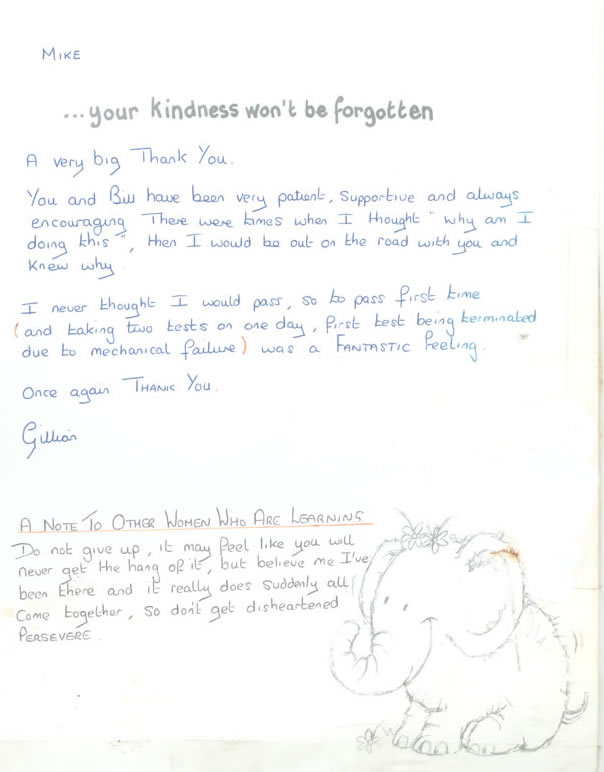 MIKE
...your kindness won't be forgotten
A very big Thank You.
You and Bill have been very patient, supportive and always
encouraging There were times when I thought "why am I
doing this", then I would be out on the road with you and
knew why
I never thought I would pass, so to pass first time
(and taking two tests on one day, first test being terminated
due to mechanical failure) was a FANTASTIC feeling.
Once again THANK YOU.
Gillian
A NOTE TO OTHER WOMEN WHO ARE LEARNING
Do not give up, it may feel like you will
never get the hang of it, but believe me I've
been there and it really does suddenly all
come together, so don't get disheartened
PERSEVERE.